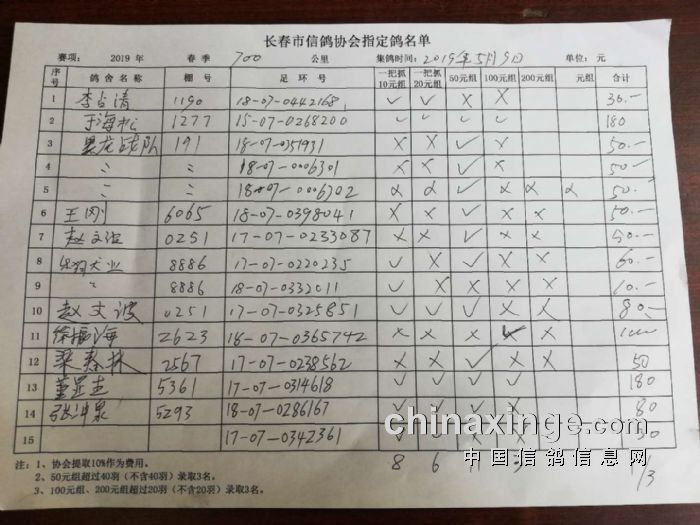 长春市信鸽协会指定鸽名单
赛项: 2019 年 春季 700 公里 集鸽时间: 2019年5月9日 单位: 元
序号 鸽舍名称 棚号 足环号 一把抓10元组 一把抓20元组 50元组 100元组 200元组 元组 合计
1 李占清 1190 18-07-0442168 ✓ ✓ × × 30.-
2 于海松 1277 15-07-0268200 ✓ ✓ ✓ ✓ 180
3 黑龙战队 191 18-07-0351931 × × ✓ × 50.-
4 〃 〃 18-07-0006301 × × ✓ × 50-
5 〃 〃 18-07-0006302 × × ✓ × × × 50.-
6 王刚 6065 18-07-0398041 × × ✓ × × 50.-
7 赵文波 0251 17-07-0233087 × × ✓ × × 50.-
8 8886 17-07-0220235 ✓ × ✓ × × 60.-
9 〃 8886 18-07-0332011 ✓ × × × × 10.-
10 赵文波 0251 17-07-0325851 ✓ ✓ ✓ × × 80.-
11 徐振海 2623 18-07-0365742 × × × ✓ ×
12 2567 17-07-0238562 × × ✓ × × 50
13 5361 17-07-0314618 ✓ ✓ ✓ ✓ 180
14 5293 18-07-0286167 ✓ ✓ ✓ 80
15 17-07-0342361 ✓ ✓
8 6
注: 1、协会提取10%作为费用。
2、50元组超过40羽(不含40羽)录取3名。
3、100元组、200元组超过20羽(不含20羽)录取3名。
chinaxinge.com
中国信鸽信息网